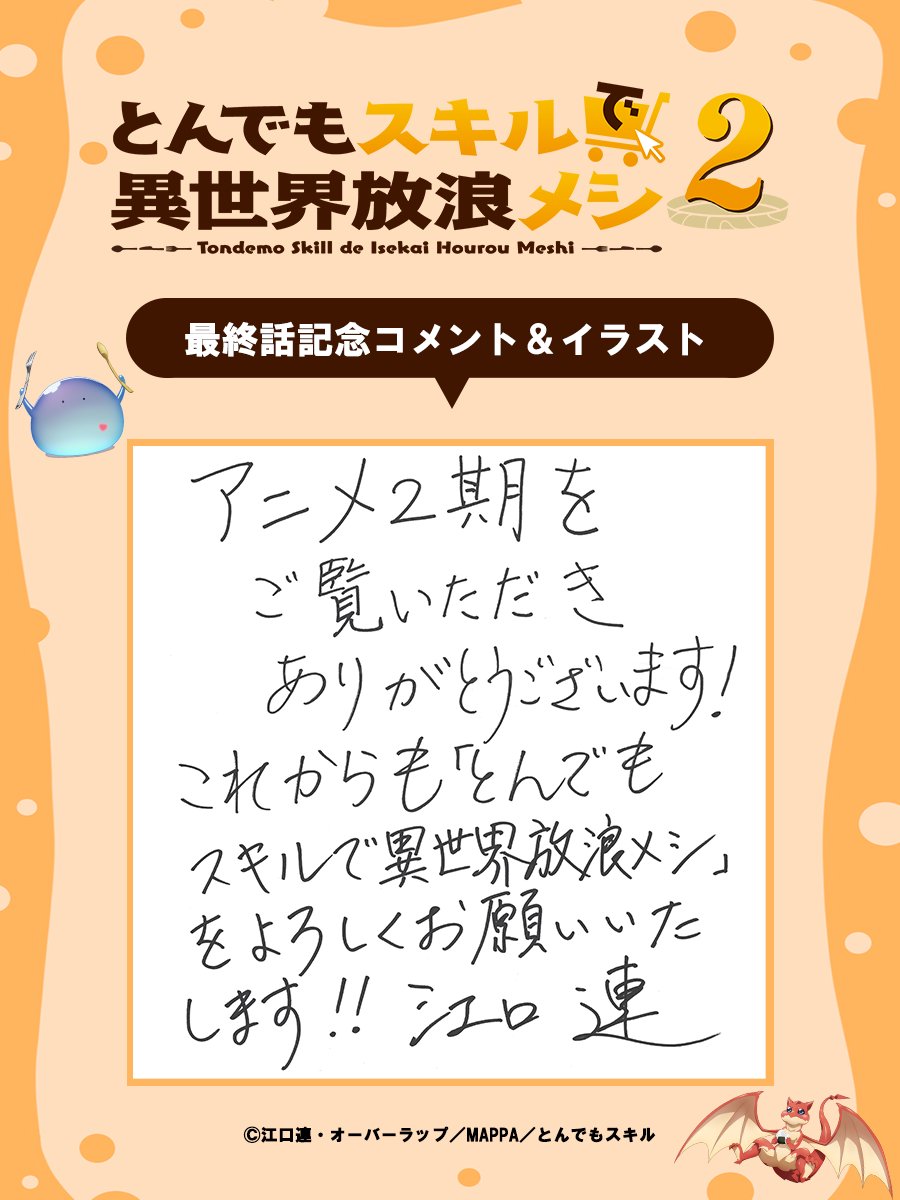 とんでもスキルで
異世界放浪メシ2
Tondemo Skill de Isekai Hourou Meshi
最終話記念コメント＆イラスト
アニメ2期を
ご覧いただき
ありがとうございます!
これからも「とんでも
スキルで異世界放浪メシ」
をよろしくお願いいた
します!! 江口 連
©江口連・オーバーラップ／MAPPA／とんでもスキル